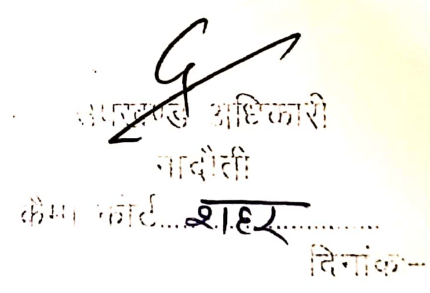 उपखण्ड अधिकारी
नादौती
कैम्प कोर्ट.....शहर.....
दिनांक--